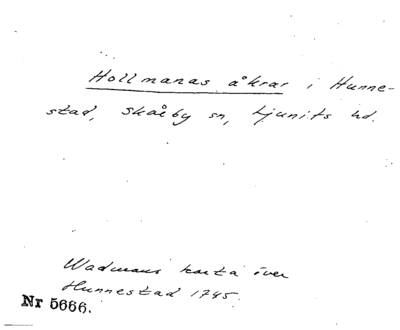 Hollmanas åkrar i Hunne-
stad, Skårby sn, Ljunits hd.
Wadmans karta över
Hunnestad 1745.
Nr 5666.